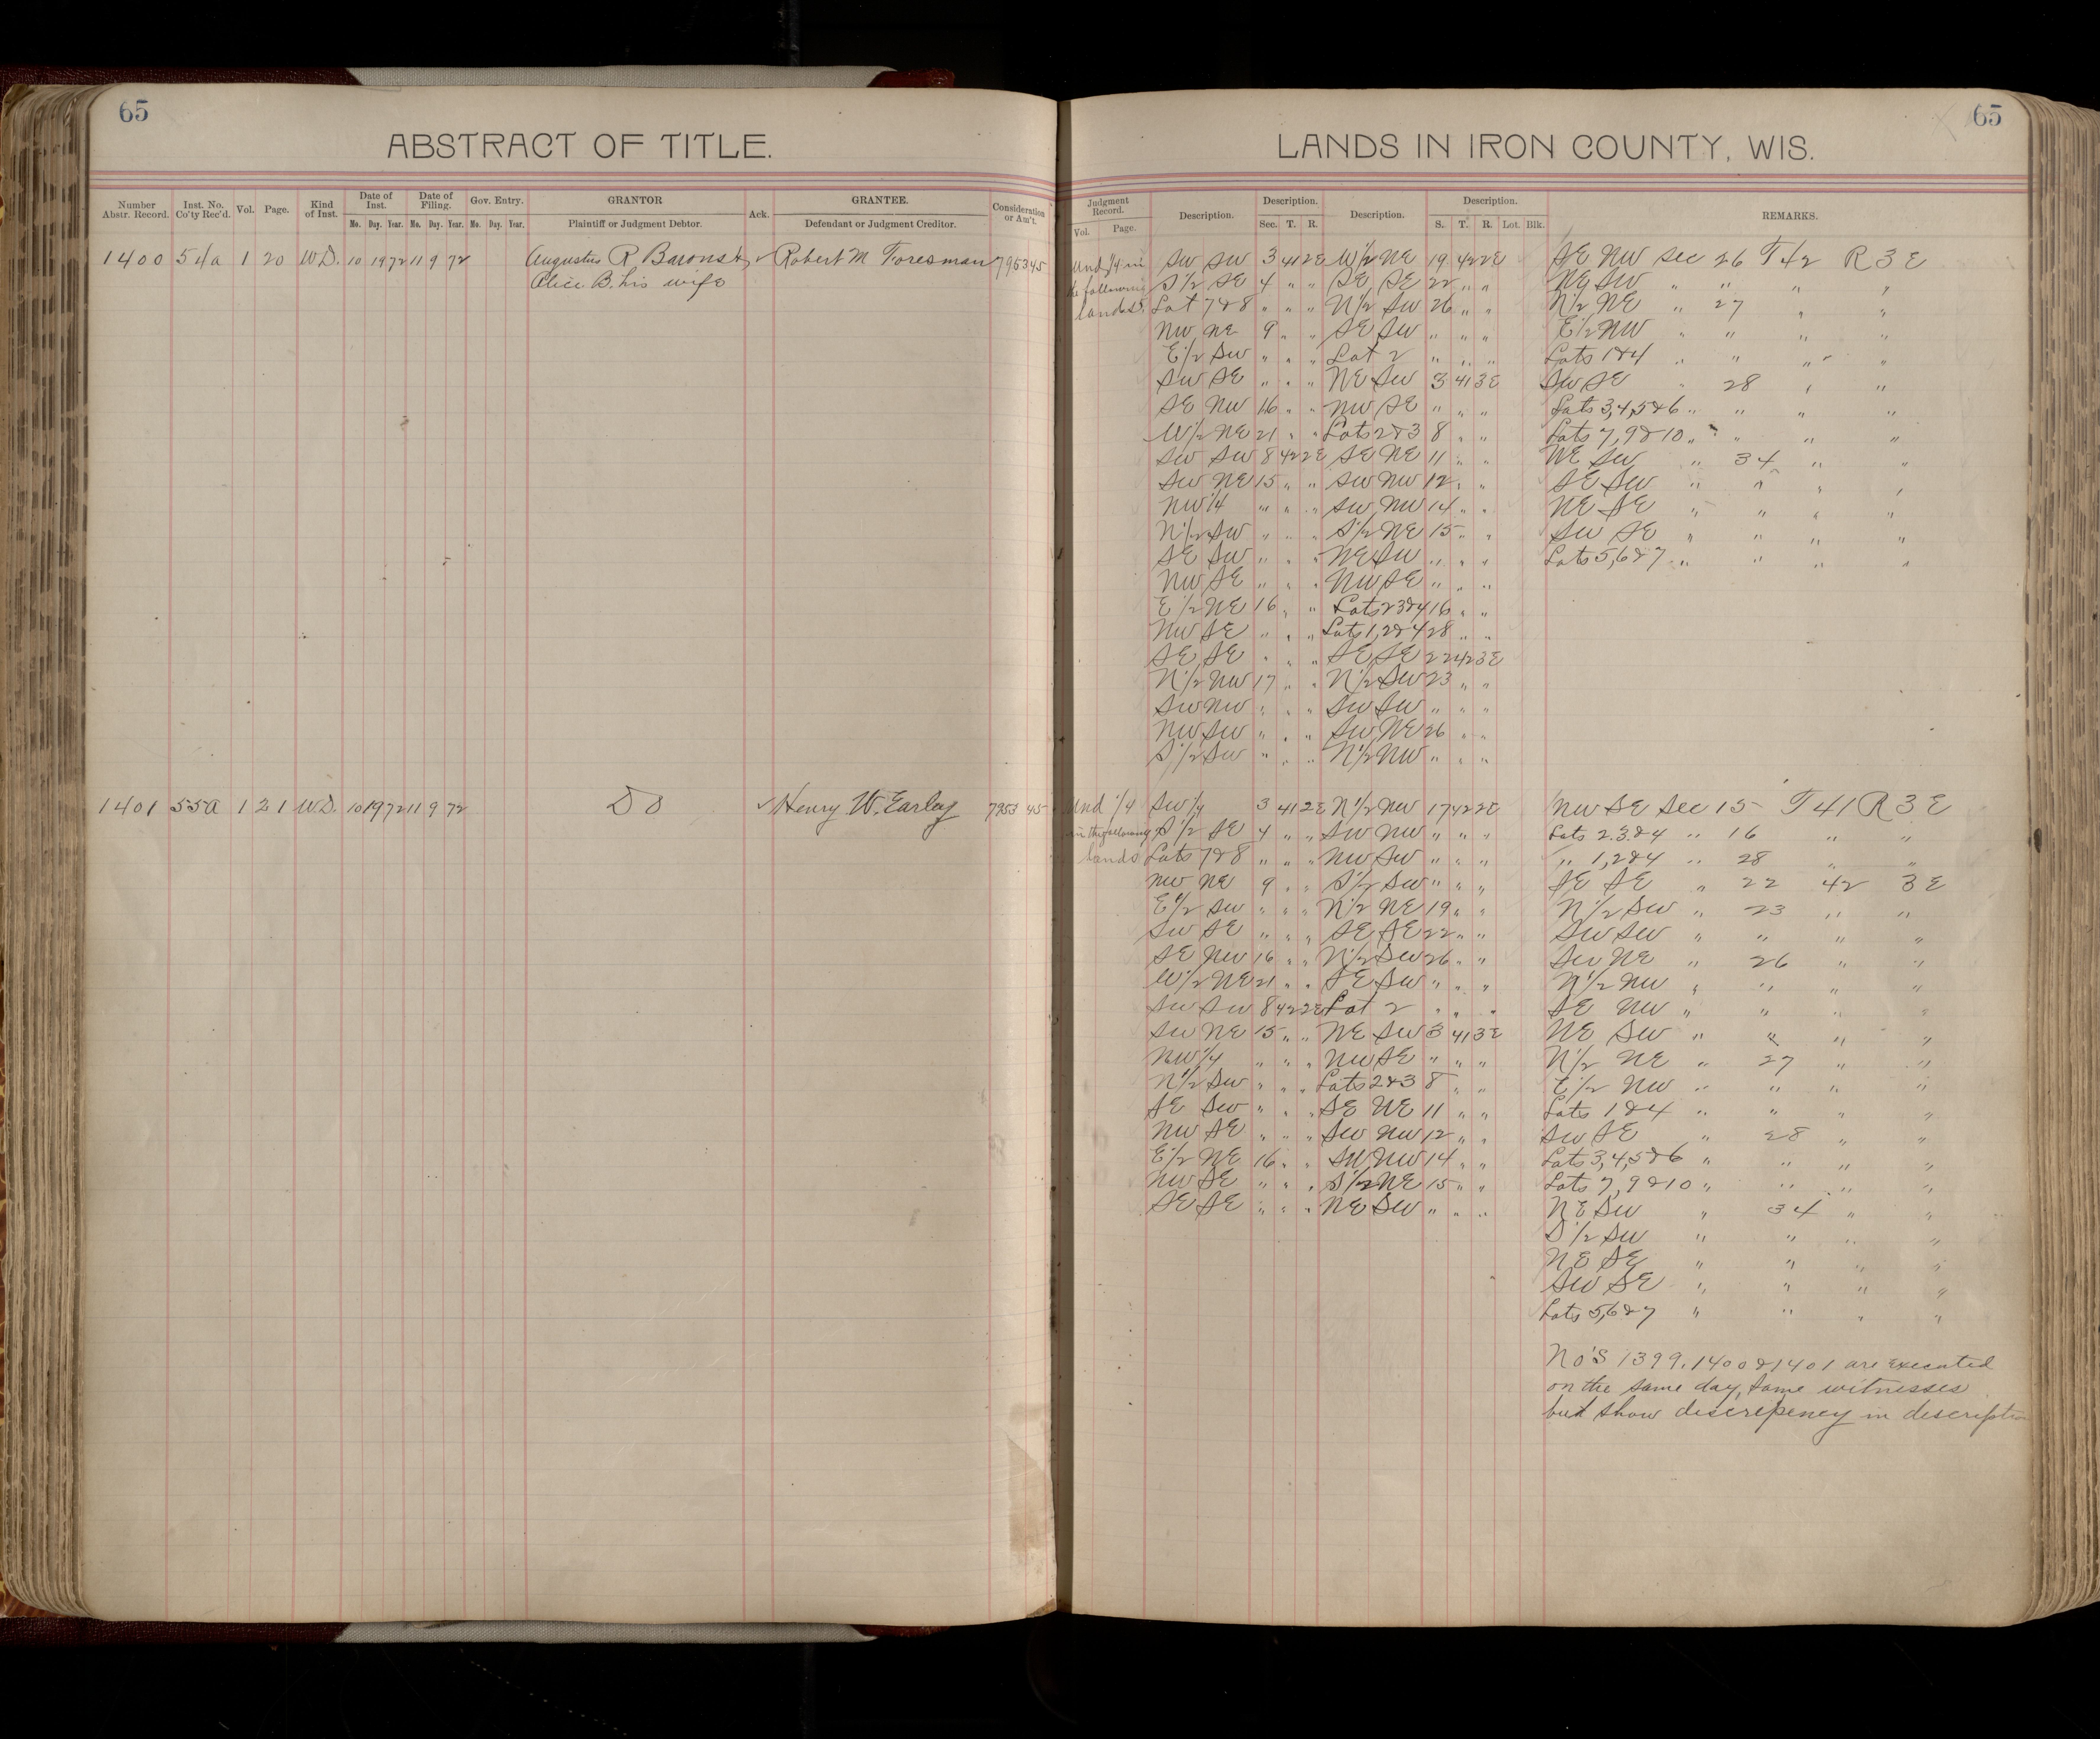 65
ABSTRACT OF TITLE.
Number Abstr. Record. Inst. No. Co'ty Rec'd. Vol. Page. Kind of Inst. Date of Inst. Date of Filing. Gov. Entry. GRANTOR Ack. GRANTEE. Consideration or Am't.
Mo. Day. Year. Mo. Day. Year. Mo. Day. Year. Plaintiff or Judgment Debtor. Defendant or Judgment Creditor.
1400 54a 1 20 W.D. 10 19 72 11 9 72 Augustus R Barons & ✓ Robert M Foresman 7953 45
Alice B. his wife
1401 55a 1 21 W.D. 10 19 72 11 9 72 DO ✓ Henry W. Earley 7953 45
65
LANDS IN IRON COUNTY, WIS.
Judgment Record. Description. Description. Description. Description. REMARKS.
Vol. Page. Sec. T. R. S. T. R. Lot. Blk.
Und 1/4 in SW SW 3 41 2E W1/2 NE 19 42 2E SE NW Sec 26 T42 R3E
the following S1/2 SE 4 " " SE SE 22 " " NE SW " " " "
lands Lot 7&8 " " " N1/2 SW 26 " " N1/2 NE " 27 " "
NW NE 9 " " SE SW " " " E1/2 NW " " " "
E1/2 SW " " " Lot 2 " " " Lots 1&4 " " " "
SW SE " " " NE SW 3 41 3E SW SE " 28 " "
SE NW 16 " " NW SE " " " Lots 3,4,5&6 " " " "
W1/2 NE 21 " " Lots 2&3 8 " " Lots 7,9&10 " " " "
SW SW 8 42 2E SE NE 11 " " NE SW " 34 " "
SW NE 15 " " SW NW 12 " " SE SW " " " "
NW1/4 " " " SW NW 14 " " NE SE " " " "
N1/2 SW " " " S1/2 NE 15 " " SW SE " " " "
SE SW " " " NE SW " " " Lots 5,6&7 " " " "
NW SE " " " NW SE " " "
E1/2 NE 16 " " Lots 2 3&4 16 " "
NW SE " " " Lots 1,2&4 28 " "
SE SE " " " SE SE 22 42 3E
N1/2 NW 17 " " N1/2 SW 23 " "
SW NW " " " SW SW " " "
NW SW " " " SW NE 26 " "
S1/2 SW " " " N1/2 NW " " "
Und 1/4 SW1/4 3 41 2E N1/2 NW 17 42 2E NW SE Sec 15 T41 R3E
in the following S1/2 SE 4 " " SW NW " " " Lots 2.3.&4 " 16 " "
lands Lots 7&8 " " " NW SW " " " " 1,2&4 " 28 " "
NW NE 9 " " S1/2 SW " " " SE SE " 22 42 3E
E1/2 SW " " " N1/2 NE 19 " " N1/2 SW " 23 " "
SW SE " " " SE SE 22 " " SW SW " " " "
SE NW 16 " " N1/2 SW 26 " " SW NE " 26 " "
W1/2 NE 21 " " SE SW " " " N1/2 NW " " " "
SW SW 8 42 2E Lot 2 " " " SE NW " " " "
SW NE 15 " " NE SW 3 41 3E NE SW " " " "
NW1/4 " " " NW SE " " " N1/2 NE " 27 " "
N1/2 SW " " " Lots 2&3 8 " " E1/2 NW " " " "
SE SW " " " SE NE 11 " " Lots 1&4 " " " "
NW SE " " " SW NW 12 " " SW SE " 28 " "
E1/2 NE 16 " " SW NW 14 " " Lots 3,4,5&6 " " " "
NW SE " " " S1/2 NE 15 " " Lots 7,9&10 " " " "
SE SE " " " NE SW " " " NE SW " 34 " "
S1/2 SW " " " "
NE SE " " " "
SW SE " " " "
Lots 5,6&7 " " " "
No's 1399, 1400 & 1401 are executed
on the same day, same witnesses
but show discrepency in description